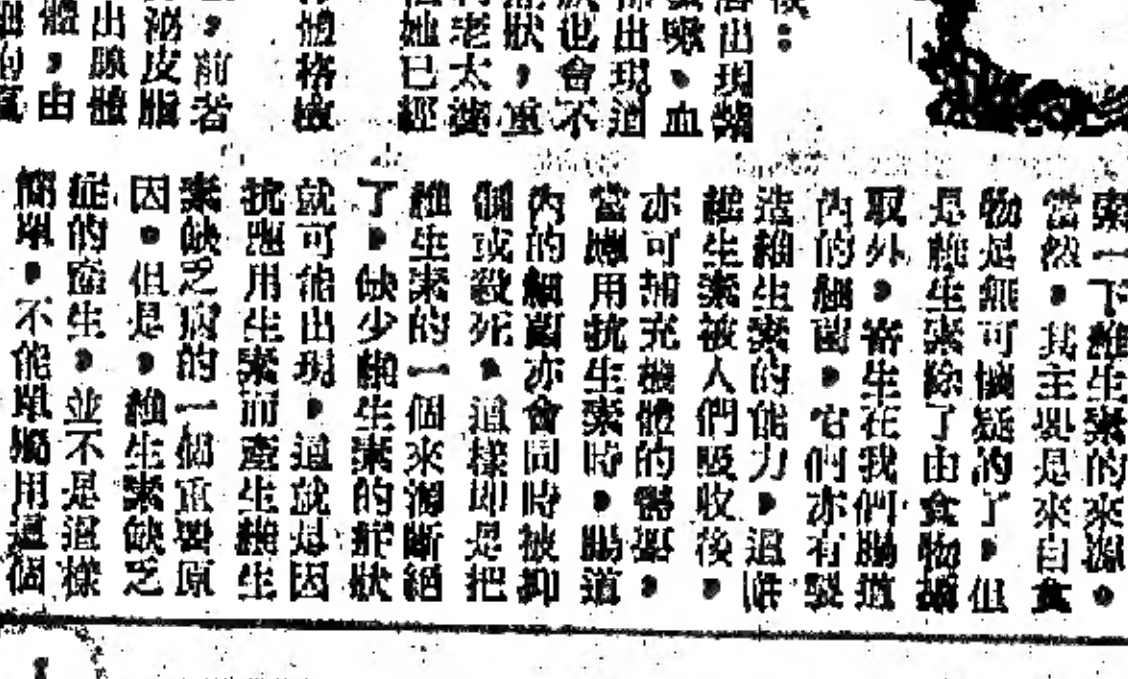 落出現
嗽、血
出現道
也會不
狀，重
老太婆
她已經
體格檢
，前者
泌皮脂
出腺體
體，由
索一下維生素的來源。
當然，其主要是來自食
物是無可懷疑的了，但
是維生素除了由食物攝
取外，寄生在我們腸道
內的細菌，它們亦有製
造維生素的能力，這些
維生素被人們吸收後，
亦可補充機體的需要。
當應用抗生素時，腸道
內的細菌亦會同時被抑
制或殺死，這樣即是把
維生素的一個來源斷絕
了，缺少維生素的症狀
就可能出現，這就是因
抗應用生素而產生維生
素缺乏病的一個重要原
因。但是，維生素缺乏
症的產生，並不是這樣
簡單，不能單獨用這個